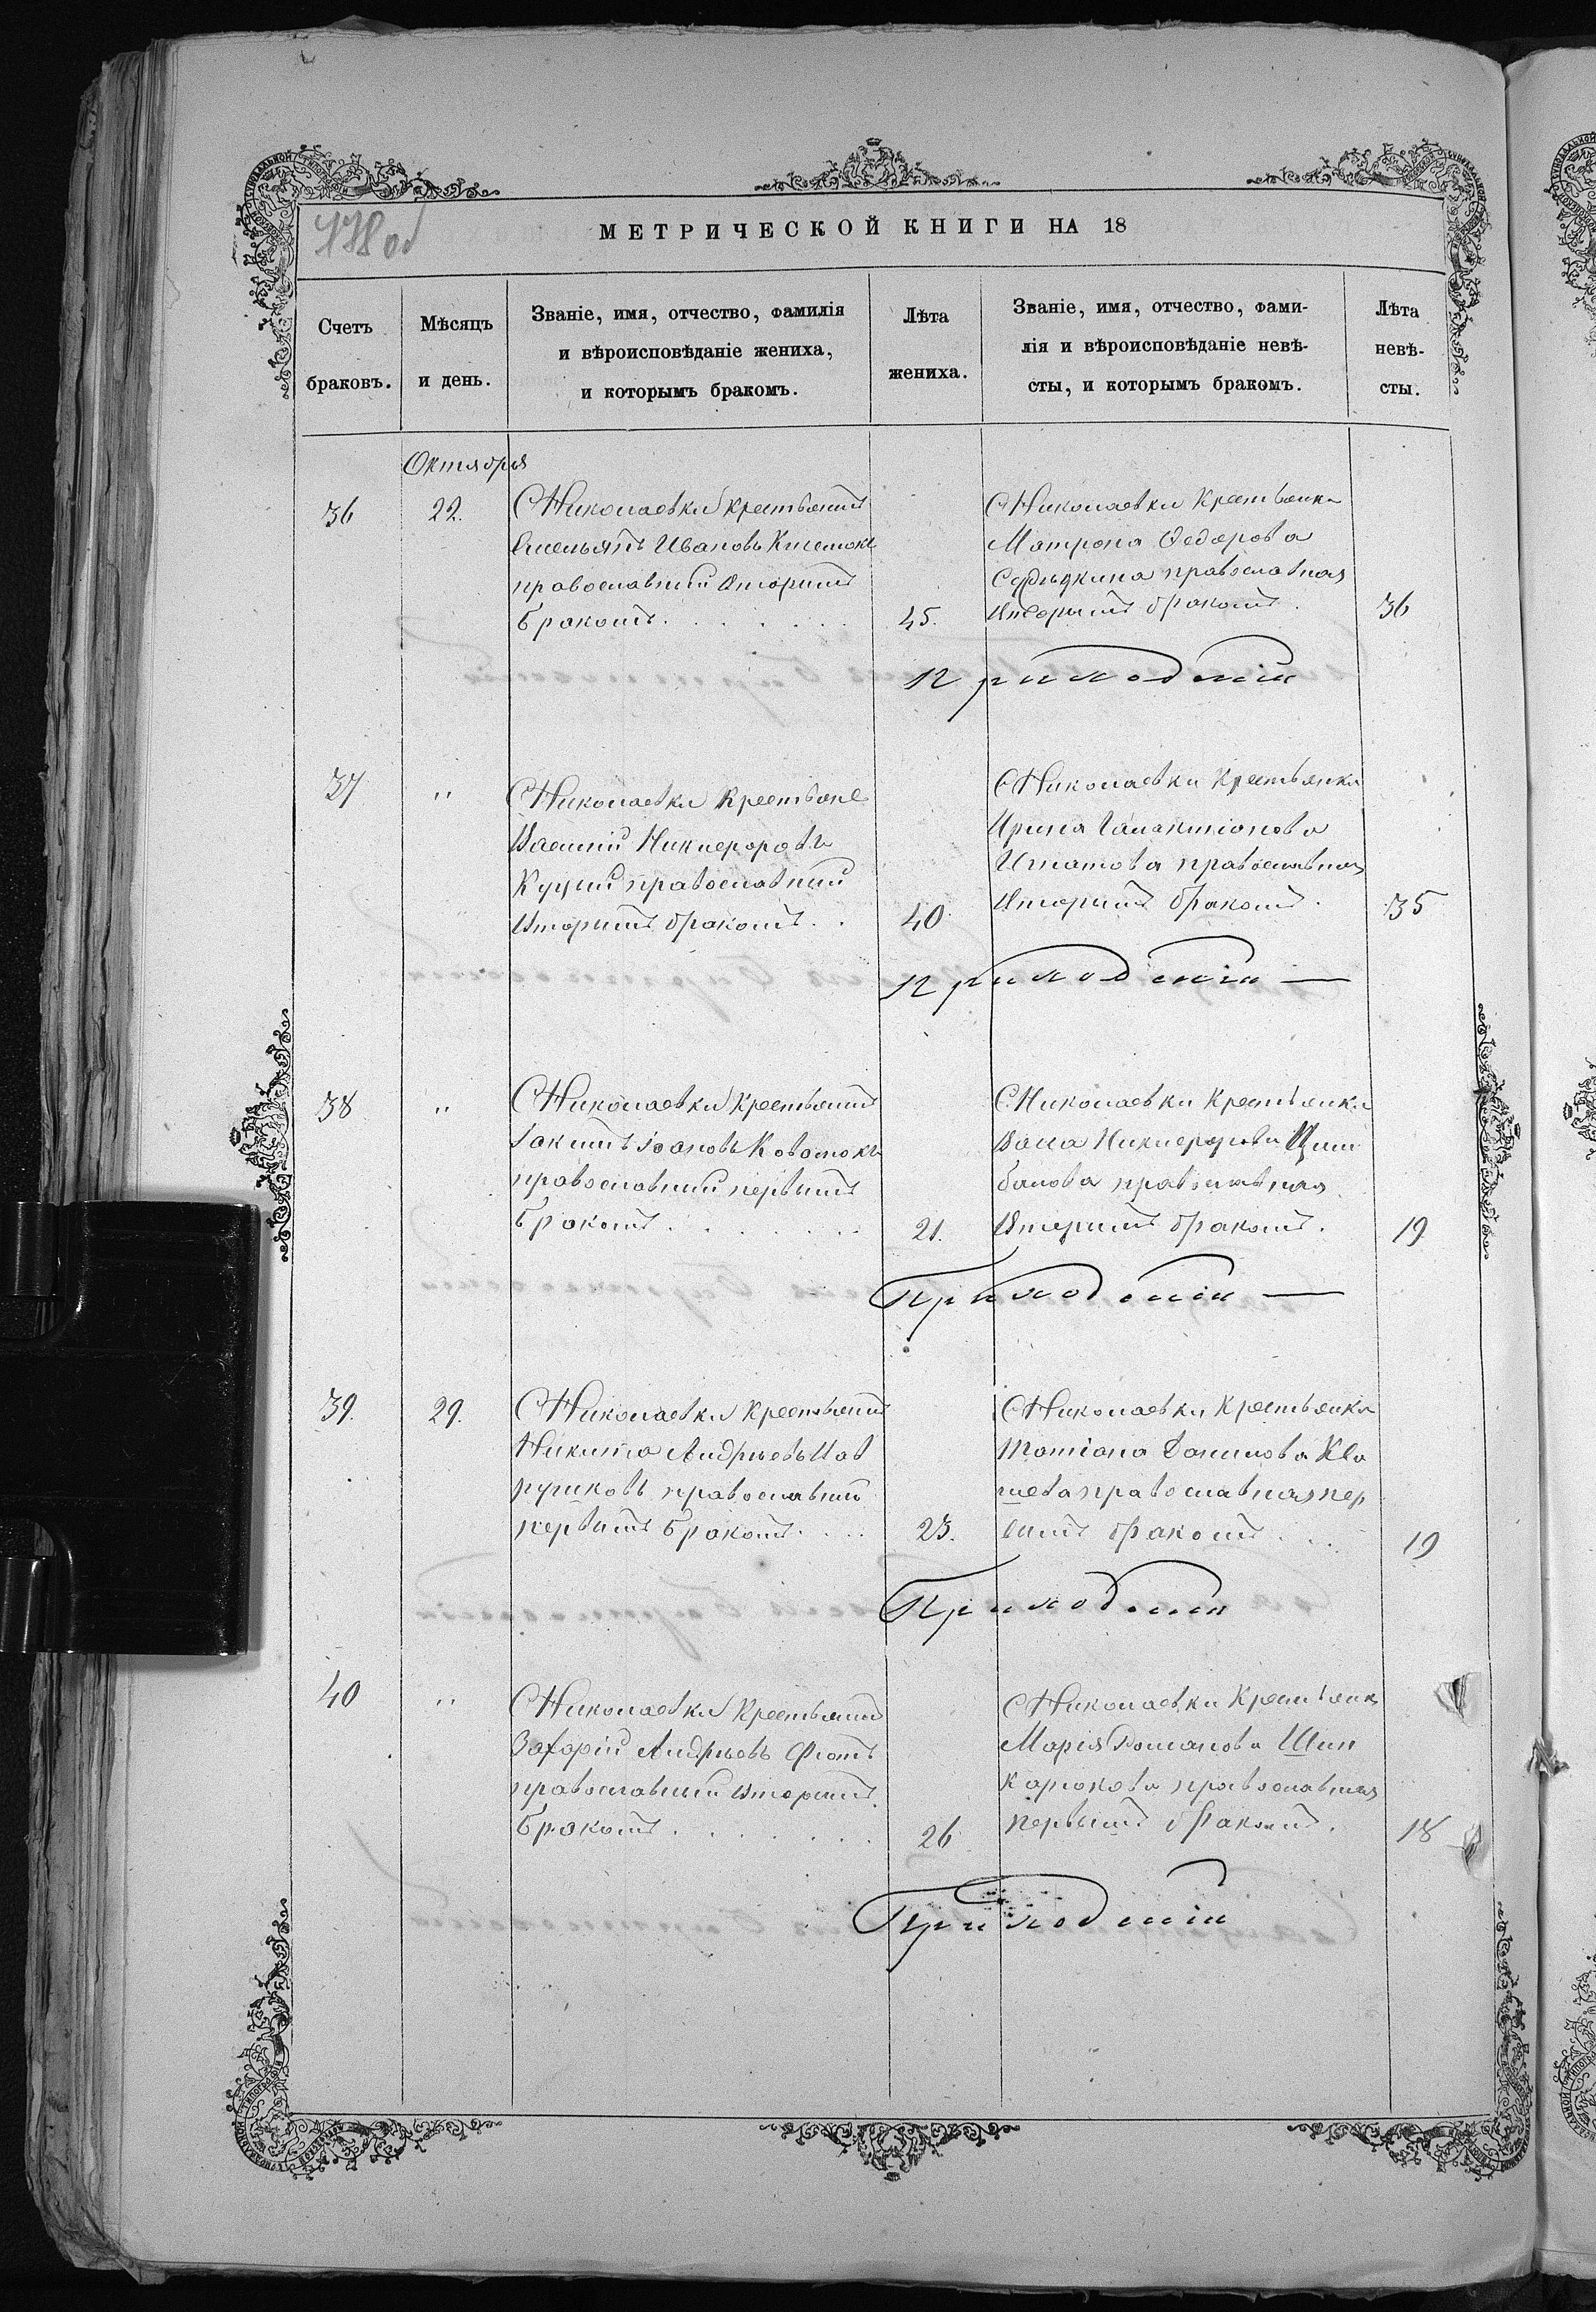 МЕТРИЧЕСКОЙ КНИГИ НА 18
Счетъ браковъ.
Мѣсяцъ и день.
Званіе, имя, отчество, фамилія
и вѣроисповѣданіе жениха,
и которымъ бракомъ.
Лѣта
жениха.
Званіе, имя, отчество, фами-
лія и вѣроисповѣданіе невѣ-
сты, и которымъ бракомъ.
Лѣта
невѣ-
сты.
Октября
36
22.
С Николаевки крестьянинъ
Емельянъ Ивановъ
православный вторымъ
бракомъ.
45.
С Николаевки крестьянка
Матрона Федорова
православная
вторымъ бракомъ.
36
Приходскіи
37
"
С Николаевки крестьяне
Василій Никифоровъ
Куцый православный
вторымъ бракомъ.
40
С Николаевки крестьянка
Ирина Галактіонова
Игнатова православная
вторымъ бракомъ.
35
Приходскіи
38
"
С Николаевки крестьянинъ
Іакимъ Іоановъ
православный первымъ
бракомъ.
21.
С Николаевки крестьянка
Никифорова Цим
балова православная
вторымъ бракомъ.
19
Приходскіи
39.
29.
С Николаевки крестьянинъ
Никита Андрѣевъ
православный
первымъ бракомъ.
23.
С Николаевки крестьянка
Татіана Данилова
православная пер
вымъ бракомъ.
19
Приходскіи
40
"
С Николаевки крестьянинъ
Захарій Андрѣевъ
православный вторымъ
бракомъ.
26
С Николаевки крестьянка
Марія Романова Шин
карюкова православная
первымъ бракомъ.
18
Приходскіи